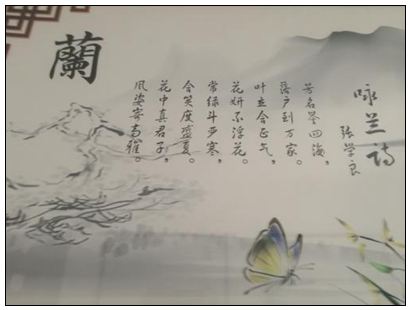 咏兰诗
张学良
芳名誉四海，
落户到万家。
叶立含正气，
花妍不浮花。
常绿斗严寒，
含笑度盛夏。
花中真君子，
风姿寄高雅。
蘭